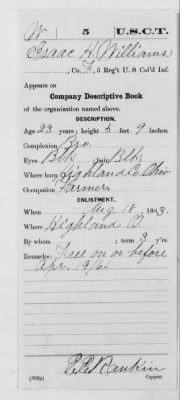 W | 5 | U.S.C.T.
Isaac H. Williams
, Co. F, 5 Reg't U. S. Col'd Inf.
Appears on
Company Descriptive Book
of the organization named above.
DESCRIPTION.
Age 23 years; height 5 feet 9 inches.
Complexion Bro.
Eyes Blk; hair Blk.
Where born Highland Co Ohio
Occupation Farmer
ENLISTMENT.
When Aug 18, 186
Where Highland O.
By whom ; term 3 y'rs.
Remarks: Free on or before
Apr. 19/61
Copyist.